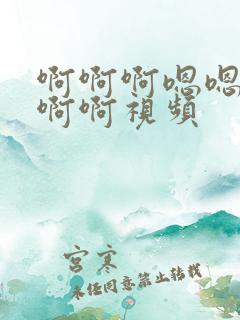 啊啊啊嗯嗯
啊啊視頻
宫寒
未经同意禁止转载